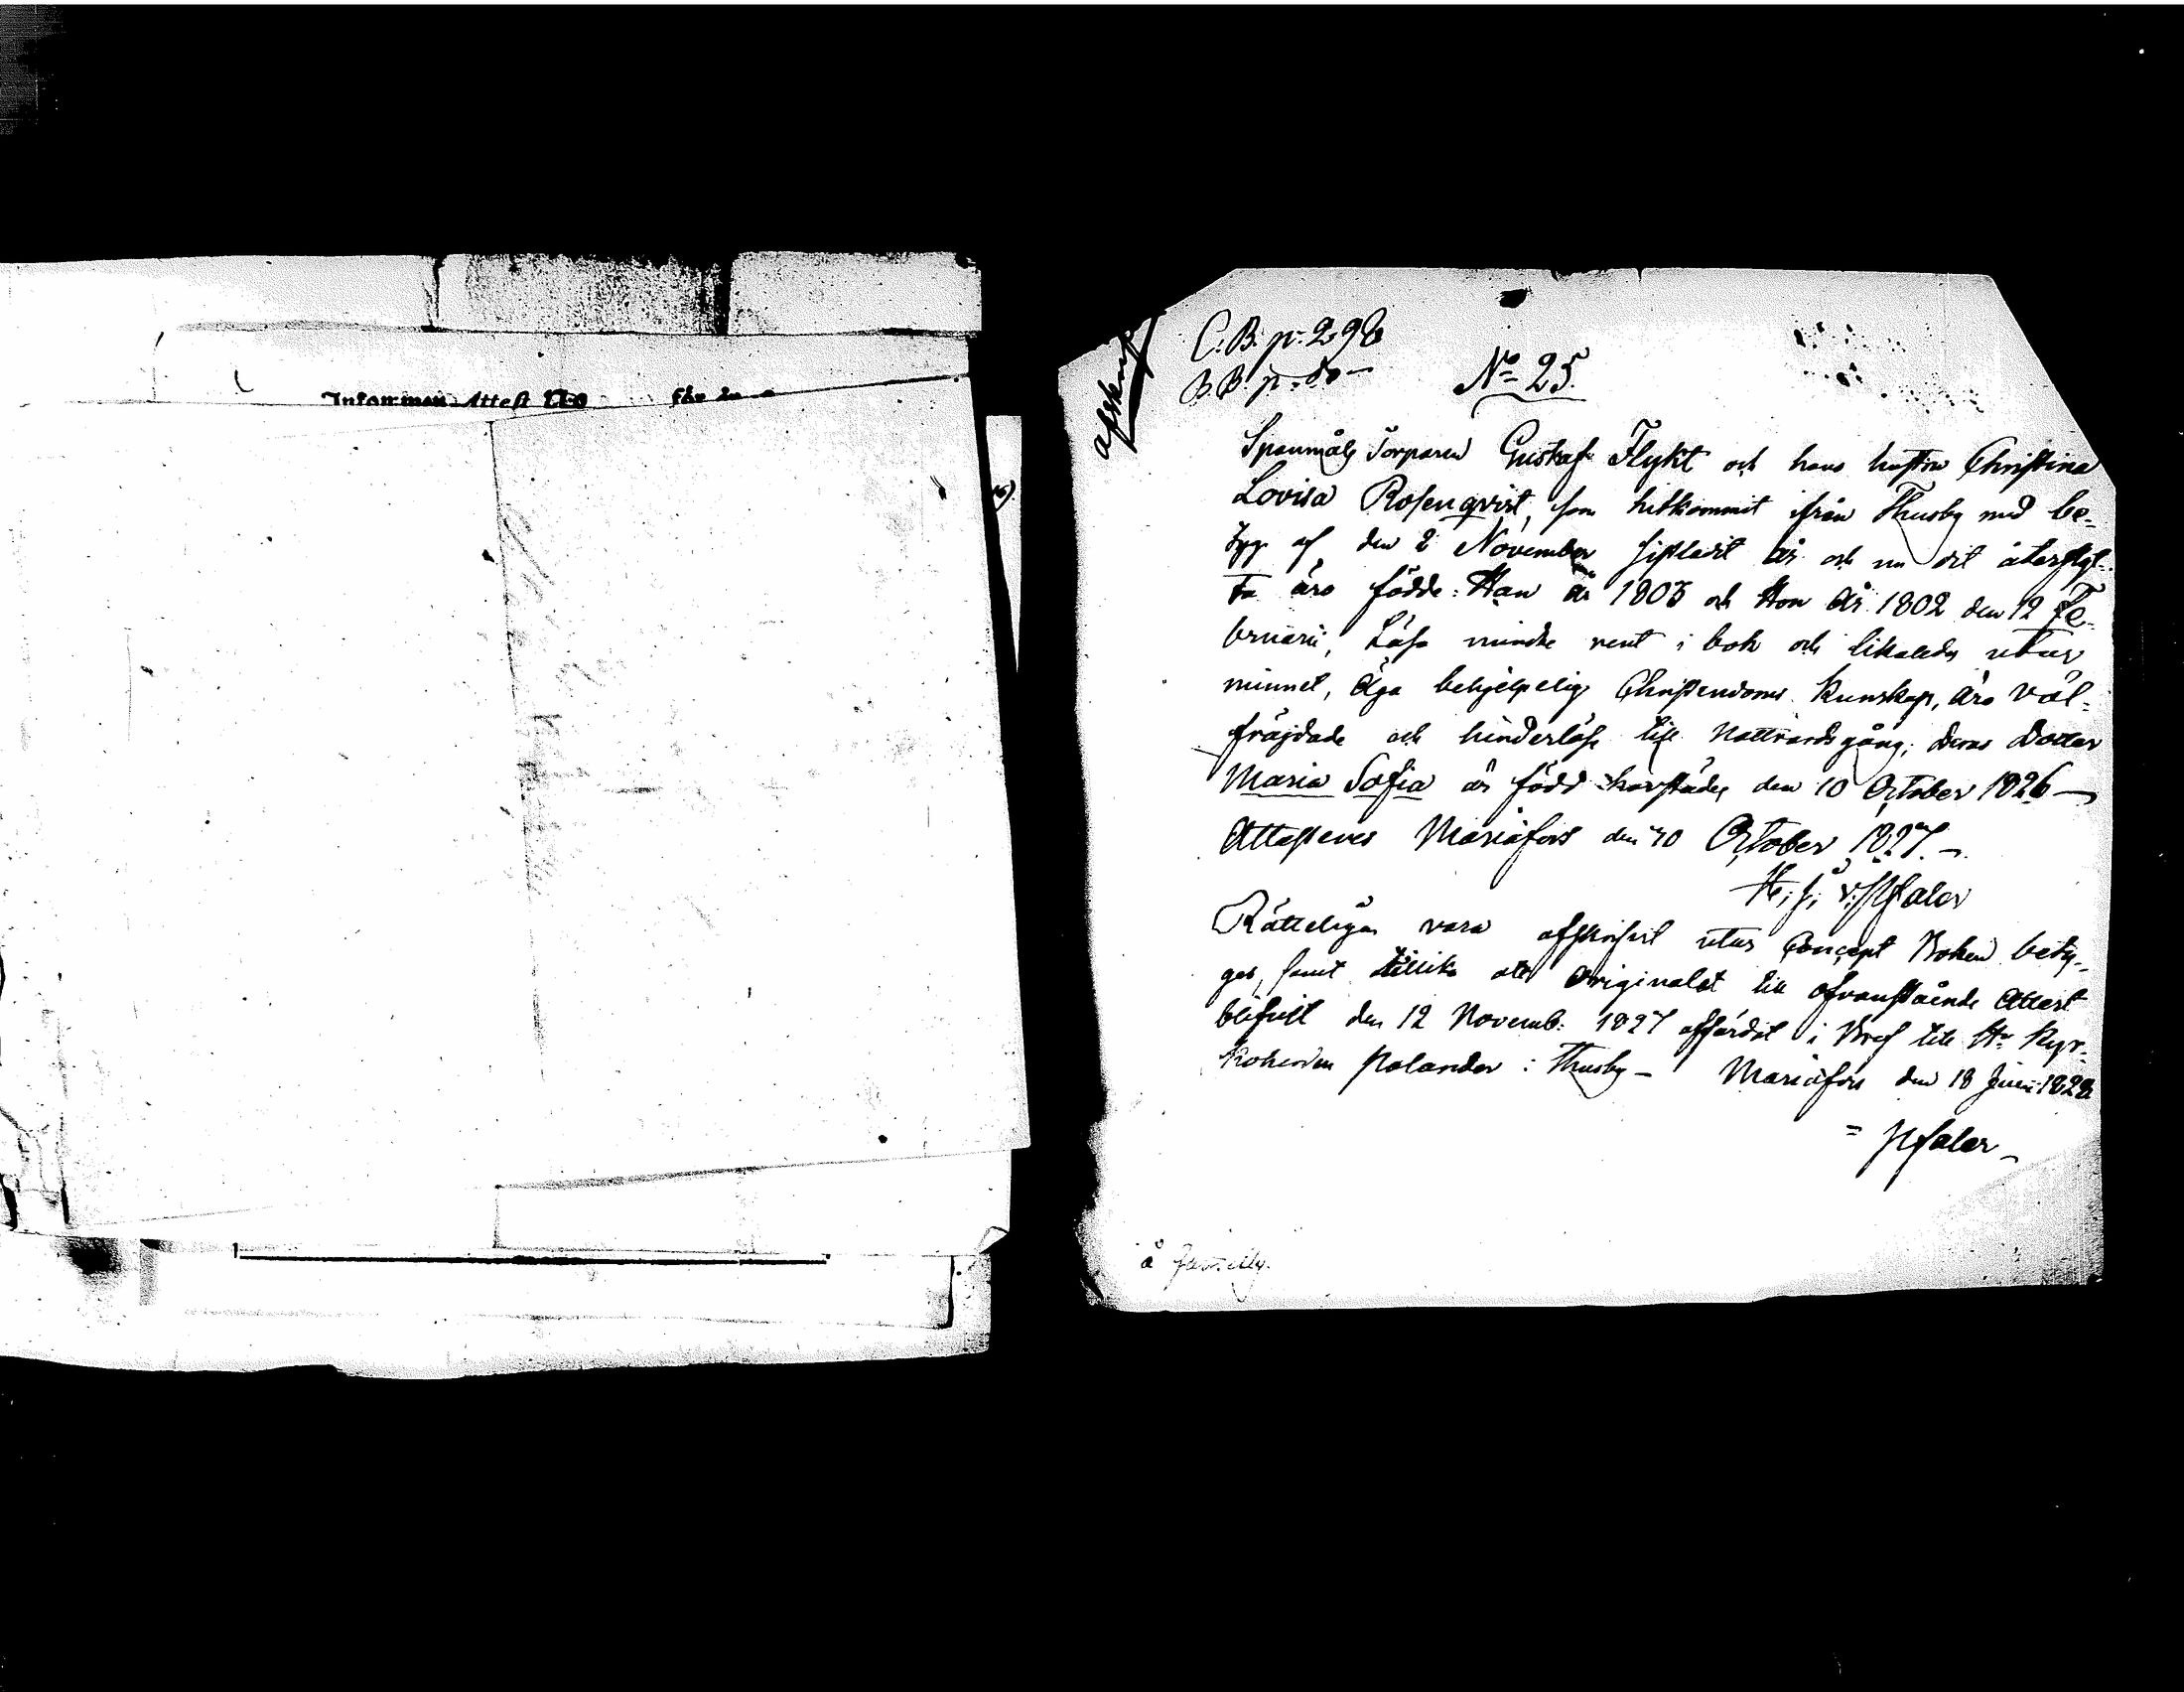 Inkommen Attest N:o för år
afskrift
C.B. p. 298
B.B. p. 80 —
No 25.
Spanmåls Torparen Gustaf Flykt och hans hustru Christina
Lovisa Rosenqvist, som hitkommit ifrån Thusby med be-
tyg af den 2 November sistledit år och nu dit återflyt-
ta äro födde: Han år 1803 och Hon år 1802 den 12 Fe-
bruarii, Läsa mindre rent i bok och likaledes utur
minnet, äga behjelpelig Christendoms Kunskap, äro väl-
fräjdade och hinderlöse till Nattvardsgång; deras Dotter
Maria Sofia är född härstädes den 10 October 1826 —
Attesteres Mariæfors den 30 October 1827. —
H. J. v. Pfaler
Rätteligen vara afskrifvit utur Concept Boken bety-
gas, samt tillika att Originalet till ofvanstående Attest
blifvit den 12 Novemb: 1827 affärdat i Bref till Hr Kyr-
koherden Polander i Thusby — Mariæfors den 18 Junii 1828
= Pfaler —
å familly.